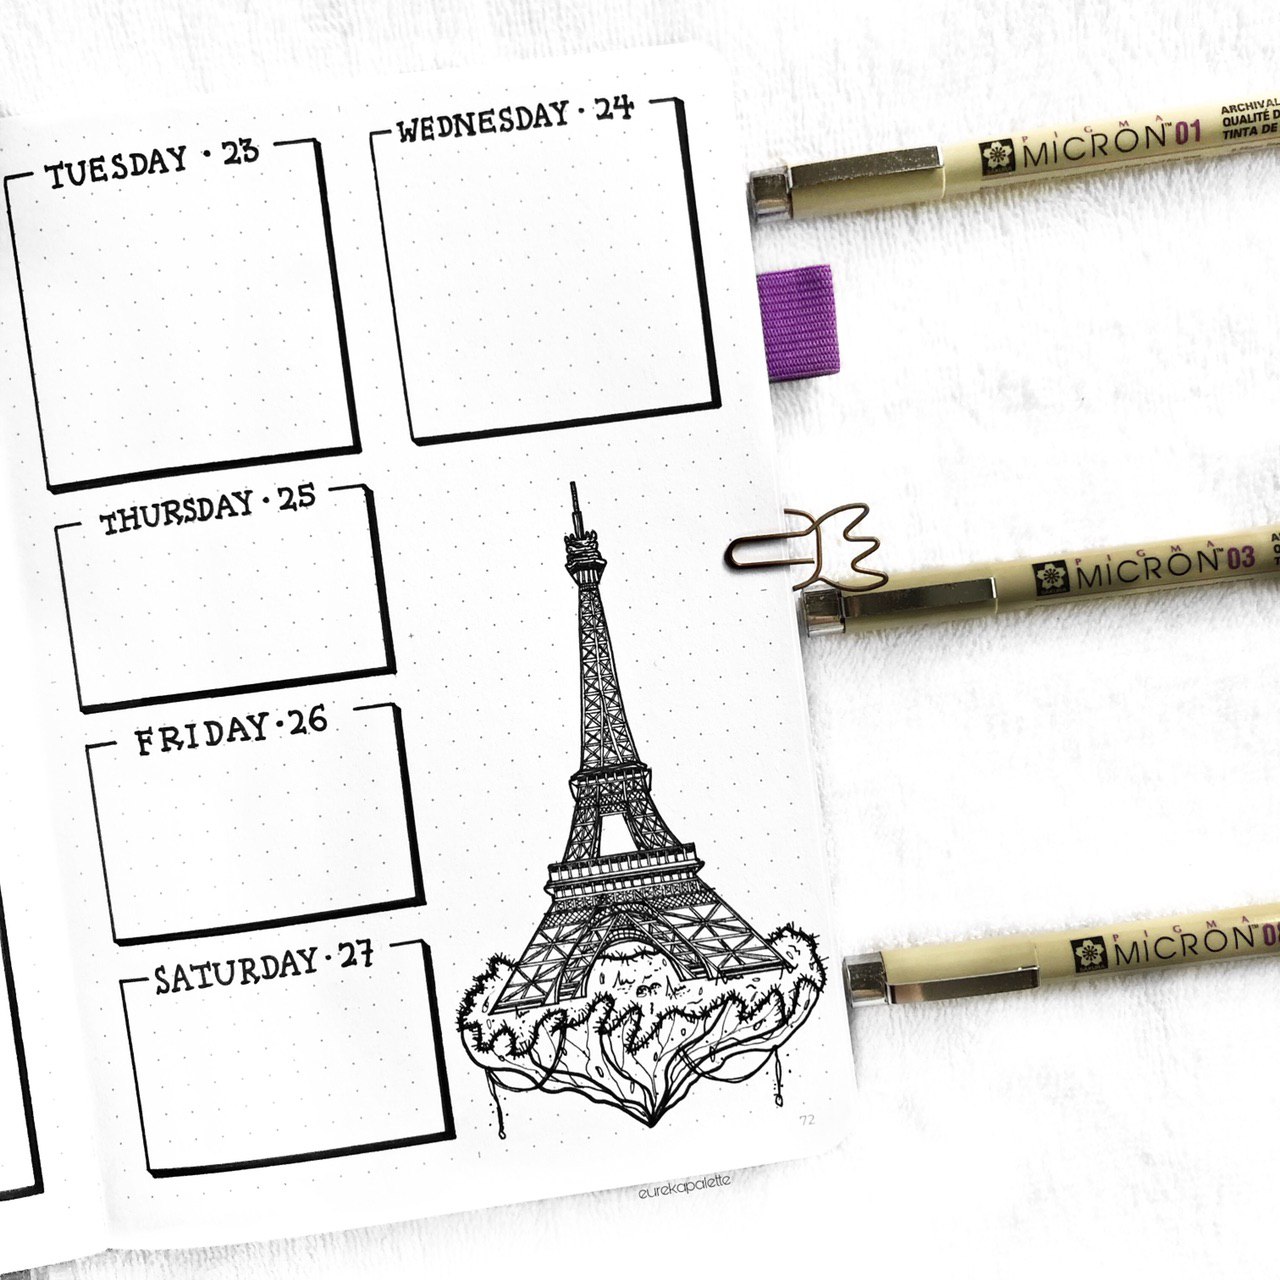 TUESDAY · 23
WEDNESDAY · 24
THURSDAY · 25
FRIDAY · 26
SATURDAY · 27
72
eurekapalette
PIGMA
MICRON™ 01
ARCHIVAL
QUALITÉ D
TINTA DE
PIGMA
MICRON™ 03
PIGMA
MICRON™